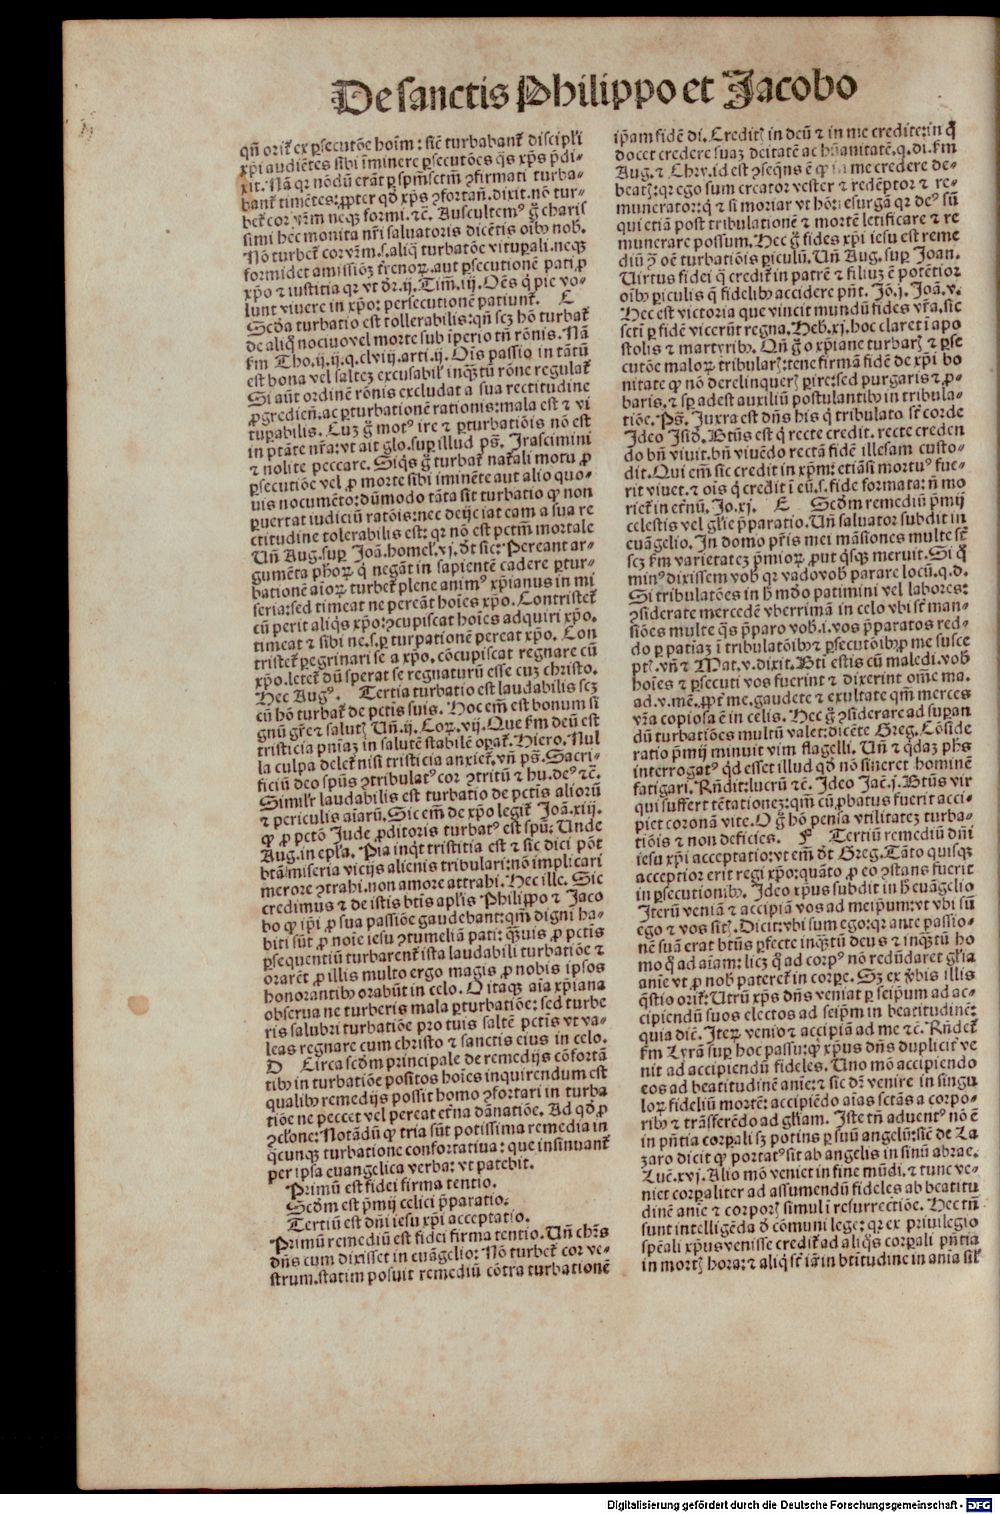 De sanctis Philippo et Jacobo
qn̄ orit᷑ ex ꝑsecutōe hoīm : sic̄ turbabant᷑ discipl'i
xp̄i audiētes sibi īminere ꝑsecutōes q̄s xp̄s p̄di-
xit. Nā qr nōdū erāt ꝑ spm̄sctm̄ ꝯfirmati turba-
bant᷑ timētes: ꝓpter qd̓ xp̄s ꝯfortan̄. dixit. nō tur-
bet᷑ cor vr̄m neqꝫ formi. ⁊c̄. Auscultem⁹ g̊ charis
simi hec monita nr̄i saluatoris dicētis oībꝰ nob̓.
Nō turbet᷑ cor vr̄m. s. aliq̄ turbatōe vituꝑali. neqꝫ
formidet amissiōꝫ t᷑renoꝝ. aut ꝑsecutionē pati ꝓ
xp̄o ⁊ iustitia qr vt dr̄. ij. Tim. iij. Oēs q̇ pie vo-
lunt viuere in xp̄o: persecutionē patiunt᷑. C
Scd̓a turbatio est tollerabilis: qn̄ scꝫ hō turbat᷑
de aliq̊ nociuo vel morte sub īperio tn̄ rōnis. Nā
km̄ Tho. ij. ij. q. clviij. arti. ij. Oīs passio in tātū
est bona vel salteꝫ excusabil' inqꝫtū rōne regulat᷑
Si aūt ordinē rōnis excludat a sua rectitudine
ꝓgredien̄. ac ꝑturbationē rationis: mala est ⁊ vi
tuꝑabilis. Cuꝫ g̊ mot⁹ ire ⁊ ꝑturbatiōis nō est
in ptāte nr̄a: vt ait glo. suꝑ illud ps̄. Irascimini
⁊ nolite peccare. Siq̇s g̊ turbat᷑ nat᷑ali motu ꝓ
ꝑsecutiōe vel ꝓ morte sibi iminēte aut alio quo-
uis nocumēto: dūmodo tāta sit turbatio ꝙ non
ꝑuertat iudiciū ratōis: nec deijciat eam a sua re
ctitudine tolerabilis est: qr nō est pctm̄ mortale
Un̄ Aug. suꝑ Joā. homel'. xj. d̓t sic: Pereant ar-
gumēta ph̓oꝝ q̇ negāt in sapientē cadere ꝑtur-
bationē aīoꝝ turbet᷑ plene anim⁹ xp̄ianus in mi
seria: sed timeat ne pereāt hoīes xp̄o. Contristet᷑
cū perit aliq̇s xp̄o: ꝯcupiscat hoīes adquiri xp̄o.
timeat ⁊ sibi ne. s. ꝑ turpationē pereat xp̄o. Con
tristet᷑ ꝑegrinari se a xp̄o. cōcupiscat regnare cū
xp̄o. letet᷑ dū sperat se regnaturū esse cuꝫ christo.
Hec Aug⁹. Tertia turbatio est laudabilis scꝫ
cū hō turbat᷑ de pctīs suis. Hoc em̄ est bonum si
gnū gr̄e ⁊ salutꝭ. Un̄. ij. Coꝝ. vij. Que km̄ deū est
tristicia pn̄iaꝫ in salutē stabilē oꝑat᷑. Hiero. Nul
la culpa delet᷑ nisi tristicia anxiet᷑. vn̄ ps̄. Sacri-
ficiū deo spūs ꝯtribulat⁹ cor ꝯtritū ⁊ hu. de⁹ ⁊c̄.
Simil'r laudabilis est turbatio de pctīs aliorū
⁊ periculis aīarū. Sic em̄ de xp̄o legit᷑ Joā. xiij.
ꝙ ꝓ pctō Jude ꝓditoris turbat⁹ est spū: Unde
Aug. in epl'a. Pia inq̇t tristitia est ⁊ sic dici pōt
btā miseria vicijs alienis tribulari: nō implicari
merore ꝯtrahi. non amore attrahi. Hec ille. Sic
credimus ⁊ de istis btīs apl'is Philippo ⁊ Jaco
bo ꝙ ip̄i ꝓ sua passiōe gaudebant: qm̄ digni ha-
biti sūt ꝓ noīe iesu ꝯtumeliā pati: qꝫuis ꝓ pctīs
ꝑsequentiū turbarent᷑ ista laudabili turbatiōe ⁊
orarēt ꝓ illis multo ergo magis ꝓ nobis ipsos
honorantibꝰ orabūt in celo. O itaqꝫ aīa xp̄iana
obserua ne turberis mala ꝑturbatiōe: sed turbe
ris salubri turbatiōe pro tuis saltē pctīs vt va-
leas regnare cum christo ⁊ sanctis eius in celo.
D Circa scd̓m principale de remedijs cōfortā
tibꝰ in turbatiōe positos hoīes inquirendum est
qualibꝰ remedijs possit homo ꝯfortari in turba
tiōe ne peccet vel pereat et᷑na dānatiōe. Ad qd̓ ꝓ
ꝯcl'one: Notādū ꝙ tria sūt potissima remedia in
q̄cunqꝫ turbatione confortatiua: que insinuant᷑
per ipsa euangelica verba: vt patebit.
Primū est fidei firma tentio.
Scd̓m est p̄mij celici p̄paratio.
Tertiū est dn̄i iesu xp̄i acceptatio.
Primū remediū est fidei firma tentio. Un̄ chr̄s
dn̄s cum dixisset in euāgelio: Nō turbet᷑ cor ve-
strum. statim posuit remediū cōtra turbationē
ip̄am fidē di. Creditꝭ in deū ⁊ in me credite: in q̊
docet credere suaꝫ deitatē ac hūanitatē. q. di. km̄
Aug. ⁊ Chry. id est ꝯseq̄ns ē ꝙ in me credere de-
beatꝭ: qr ego sum creator vester ⁊ redēptor ⁊ re-
munerator: q̇ ⁊ si moriar vt hō: resurgā qr de⁹ sū
qui etiā post tribulationē ⁊ mortē letificare ⁊ re
munerare possum. Hec g̊ fides xp̄i iesu est reme
diū ꝯ̄ oē turbatiōis ꝑiculū. Un̄ Aug. suꝑ Joan.
Uirtus fidei q̄ credit᷑ in patrē ⁊ filiuꝫ ē potētior
oībꝰ ꝑiculis q̄ fidelibꝰ accidere pn̄t. Jō. j. Joā. v.
Hec est victoria que vincit mundū fides vr̄a. sic̄
sctī ꝑ fidē vicerūt regna. Heb̓. xj. hoc claret ī apo
stolis ⁊ martyribꝰ. Qn̄ g̊ o xp̄iane turbarꝭ ⁊ ꝑse
cutōe maloꝝ tribularꝭ: tene firmā fidē de xp̄i bo
nitate ꝙ nō derelinquerꝭ ꝑire: sed purgaris ⁊ ꝓ-
baris. ⁊ sꝑ adest auxiliū postulantibꝰ in tribula-
tiōe. Ps̄. Juxta est dn̄s his q̇ tribulato st̄ corde
Ideo Isid̓. Btūs est q̇ recte credit. recte creden
do bn̄ viuit. bn̄ viuēdo rectā fidē illesam custo-
dit. Qui em̄ sic̄ credit in xp̄m: etiāsi mortu⁹ fue-
rit viuet. ⁊ oīs q̇ credit ī eū. s. fide formata: n̄ mo
riet᷑ in et᷑nū. Jo. xj. E Scd̓m remediū p̄mij
celestis vel gl'ie p̄paratio. Un̄ saluator subdit in
euāgelio. In domo pr̄is mei māsiones multe st̄
scꝫ km̄ varietateꝫ p̄mioꝝ ꝓut q̇sqꝫ meruit. Si q̊
min⁹ dixissem vob̓ qr vado vob̓ parare locū. q. d.
Si tribulatōes in h̓ mūdo patimini vel labores:
ꝯsiderate mercedē vberrimā in celo vbi st̄ man-
siōes multe q̄s p̄paro vob̓. i. vos p̄paratos red-
do ꝑ patiaꝫ ī tribulatōibꝰ ⁊ ꝑsecutōibꝰ ꝓ me susce
ptꝭ. vn̄ ⁊ Mat. v. dixit. Btī estis cū maledi. vob̓
hoīes ⁊ ꝑsecuti vos fuerint ⁊ dixerint om̄e ma.
ad. v. mē. ꝓpt᷑ me. gaudete ⁊ exultate qm̄ merces
vr̄a copiosa ē in celis. Hec g̊ ꝯsiderare ad suꝑan
dū turbatiōes multū valet: dicēte Greg. Cōside
ratio p̄mij minuit vim flagelli. Un̄ ⁊ q̇daꝫ ph̓s
interrogat⁹ q̇d esset illud qd̓ nō sineret hominē
fatigari. Rn̄dit: lucrū ⁊c̄. Ideo Jac̄. j. Btūs vir
qui suffert tētationeꝫ: qm̄ cū ꝓbatus fuerit acci-
piet coronā vite. O g̊ hō pensa vtilitateꝫ turba-
tiōis ⁊ non deficies. F Tertiū remediū dn̄i
iesu xp̄i acceptatio: vt em̄ d̓t Greg. Tāto quisqꝫ
acceptior erit regi xp̄o: quāto ꝓ eo ꝯstans fuerit
in ꝑsecutionibꝰ. Ideo xp̄us subdit in h̓ euāgelio
Iterū veniā ⁊ accipiā vos ad meip̄um: vt vbi sū
ego ⁊ vos sitꝭ. Dicit: vbi sum ego: qr ante passio-
nē suā erat btūs ꝑfecte inqꝫtū deus ⁊ inqꝫtū ho
mo q̊ ad aīam: licꝫ q̊ ad corp⁹ nō redūdaret gl'ia
anīe vt ꝓ nob̓ pateret᷑ in corpe. Sꝫ ex v̓bis illis
q̄stio orit᷑: Utrū xp̄s dn̄s veniat ꝑ seip̄um ad ac-
cipiendū suos electos ad seip̄m in beatitudinē:
quia diē. Iteꝝ venio ⁊ accipiā ad me ⁊c̄. Rn̄det᷑
km̄ Lyrā suꝑ hoc passu: ꝙ xp̄us dn̄s duplicit᷑ ve
nit ad accipiendū fideles. Uno mō accipiendo
eos ad beatitudinē anīe: ⁊ sic dr̄ venire in singu
loꝝ fideliū mortē: accipiēdo aīas sctās a corpo-
ribꝰ ⁊ trāsferēdo ad gl'iam. Iste tn̄ aduent⁹ nō ē
in pn̄tia corꝑali sꝫ potius ꝑ suū angelū: sic̄ de La
zaro dicit ꝙ portat⁹ sit ab angelis in sinū abrae.
Luc̄. xvj. Alio mō veniet in fine mūdi. ⁊ tunc ve-
niet corꝑaliter ad assumendū fideles ab beatitu
dinē anīe ⁊ corporꝭ simul ī resurrectiōe. Hec tn̄
sunt intelligēda d̓ cōmuni lege: qr ex priuilegio
spēali xp̄us venisse credit᷑ ad aliq̇s corꝑali pn̄tia
in mortꝭ hora: ⁊ aliq̇ st̄ iā in btitudine in anīa sil'
Digitalisierung gefördert durch die Deutsche Forschungsgemeinschaft - DFG